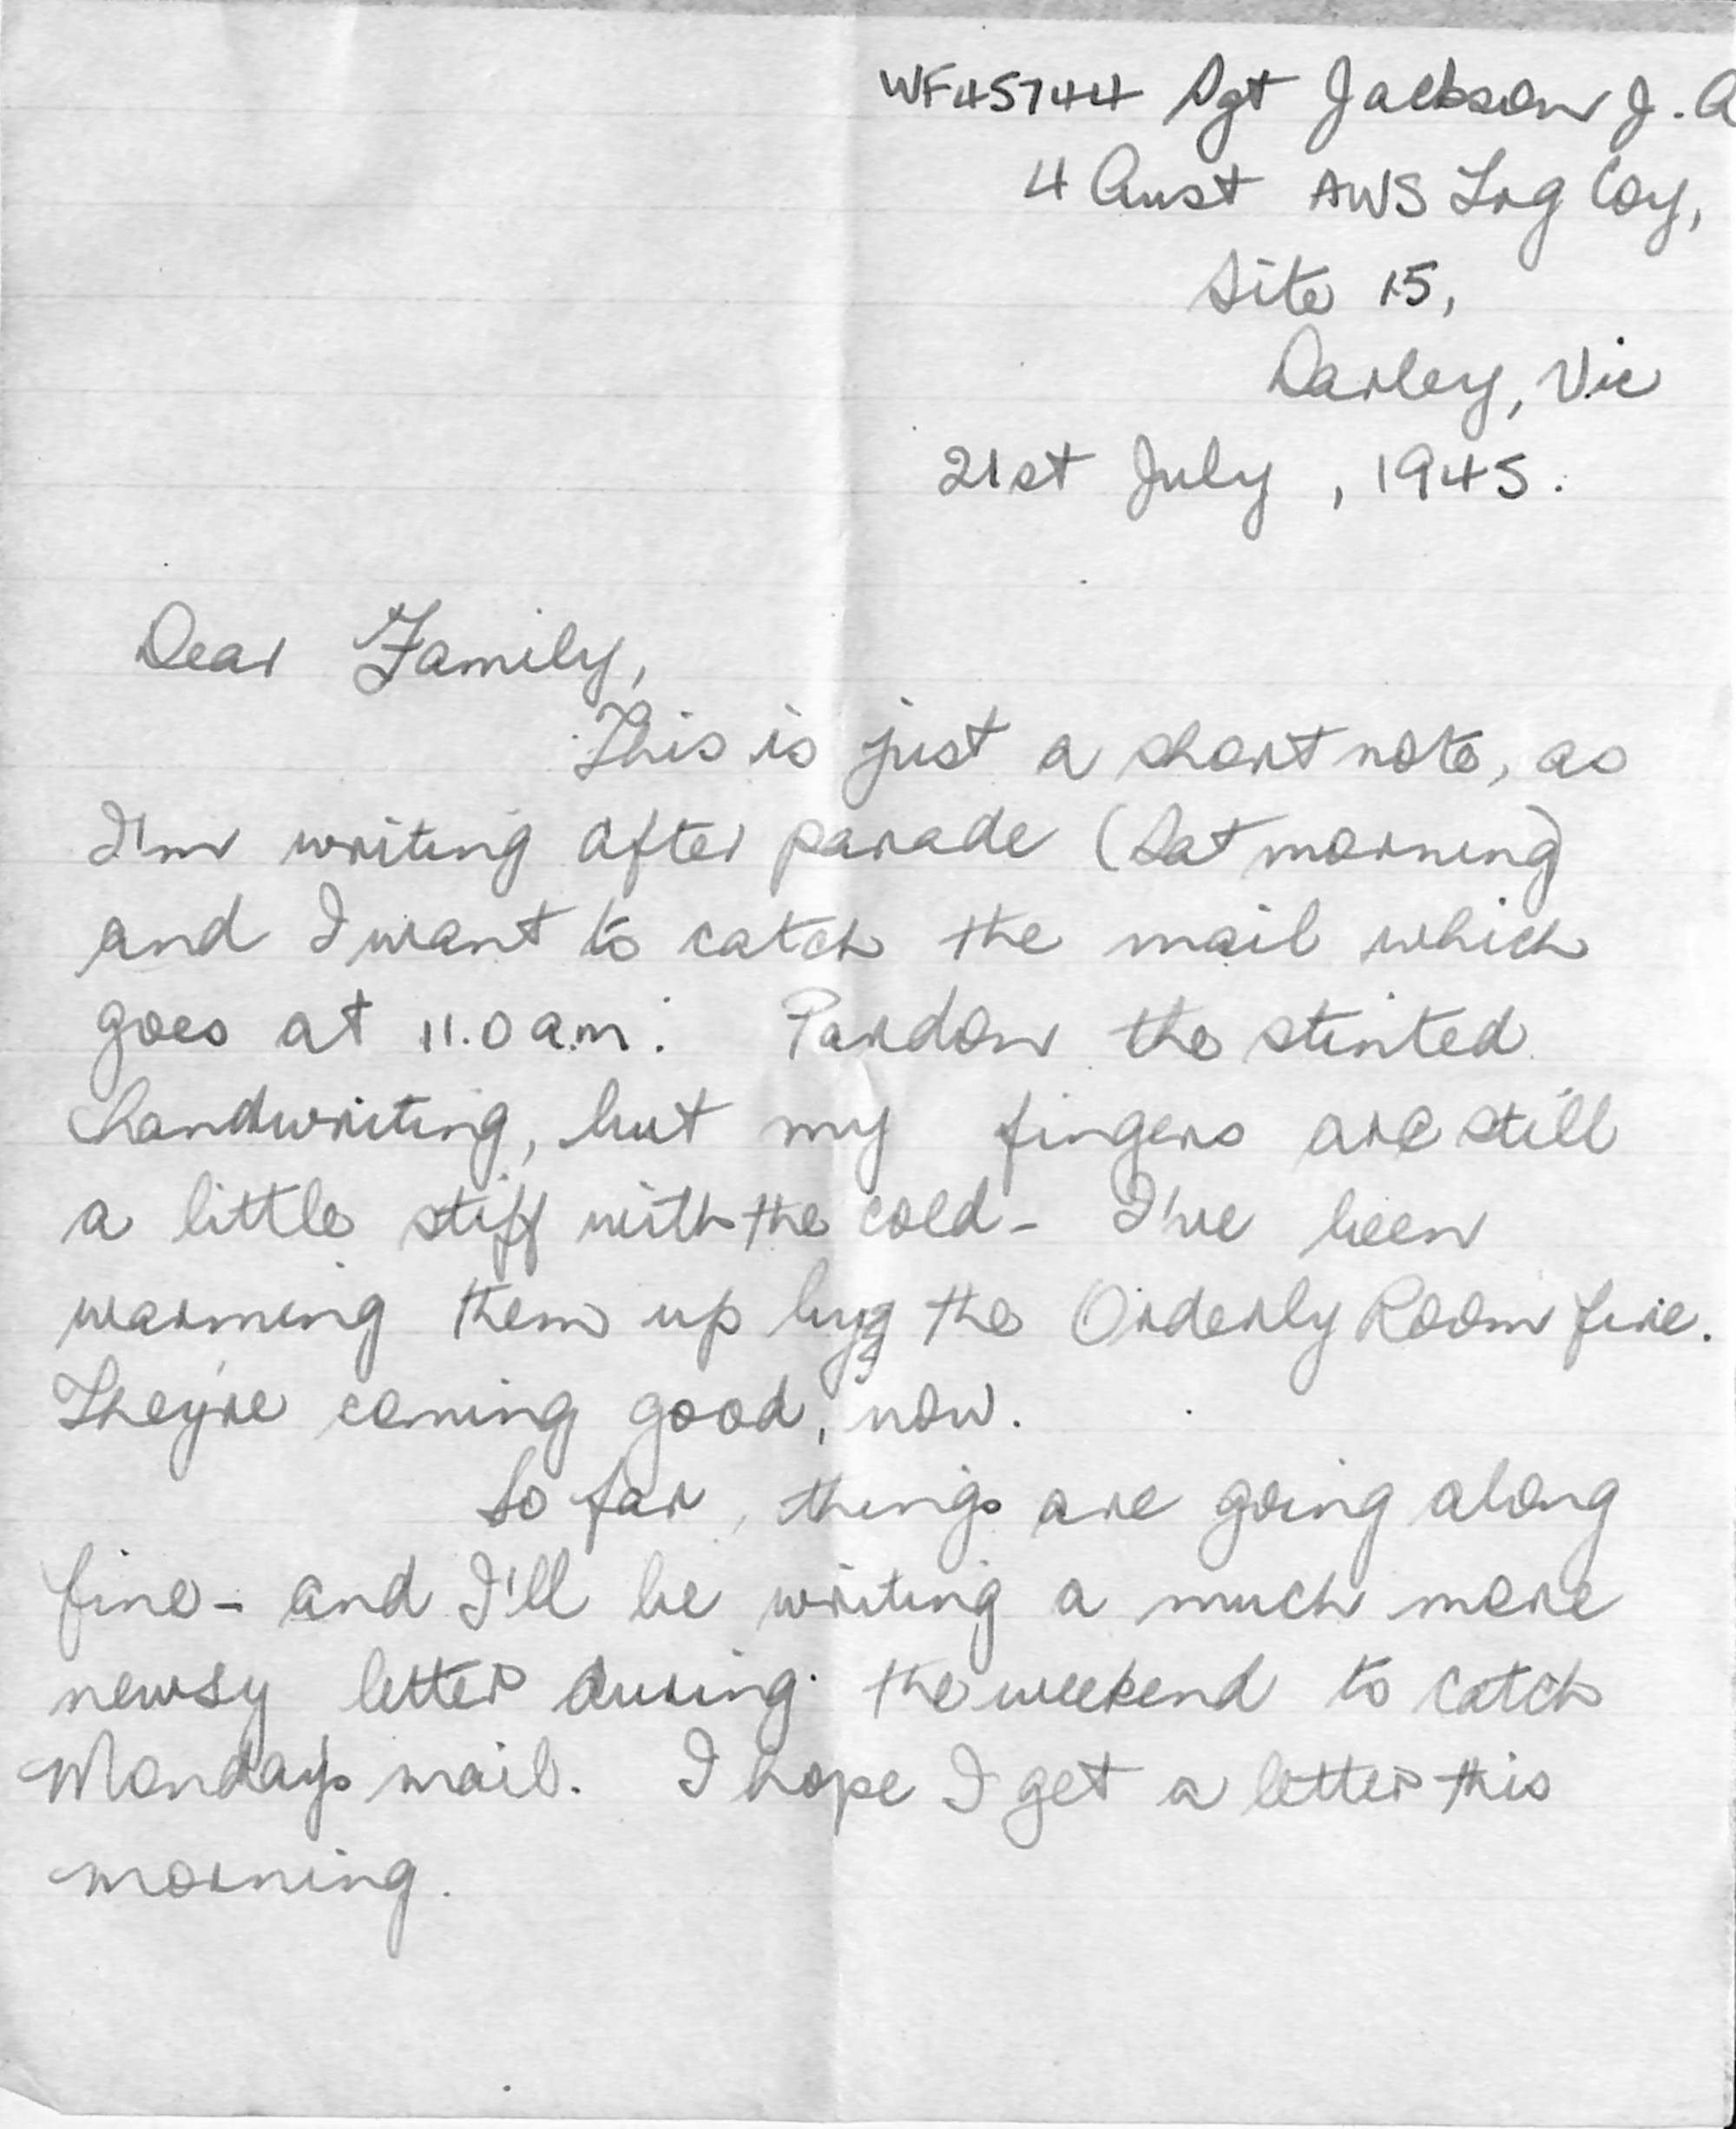 WF45744 Sgt Jackson J. A
4 Aust AWS Trg Coy,
Site 15,
Darley, Vic
21st July, 1945.
Dear Family,
This is just a short note, as
I'm writing after parade (Sat morning)
and I want to catch the mail which
goes at 11.0 a.m. Pardon the stinted
handwriting, but my fingers are still
a little stiff with the cold - I've been
warming them up by the Orderly Room fire.
They're coming good, now.
So far, things are going along
fine - and I'll be writing a much more
newsy letter during the weekend to catch
Monday's mail. I hope I get a letter this
morning.